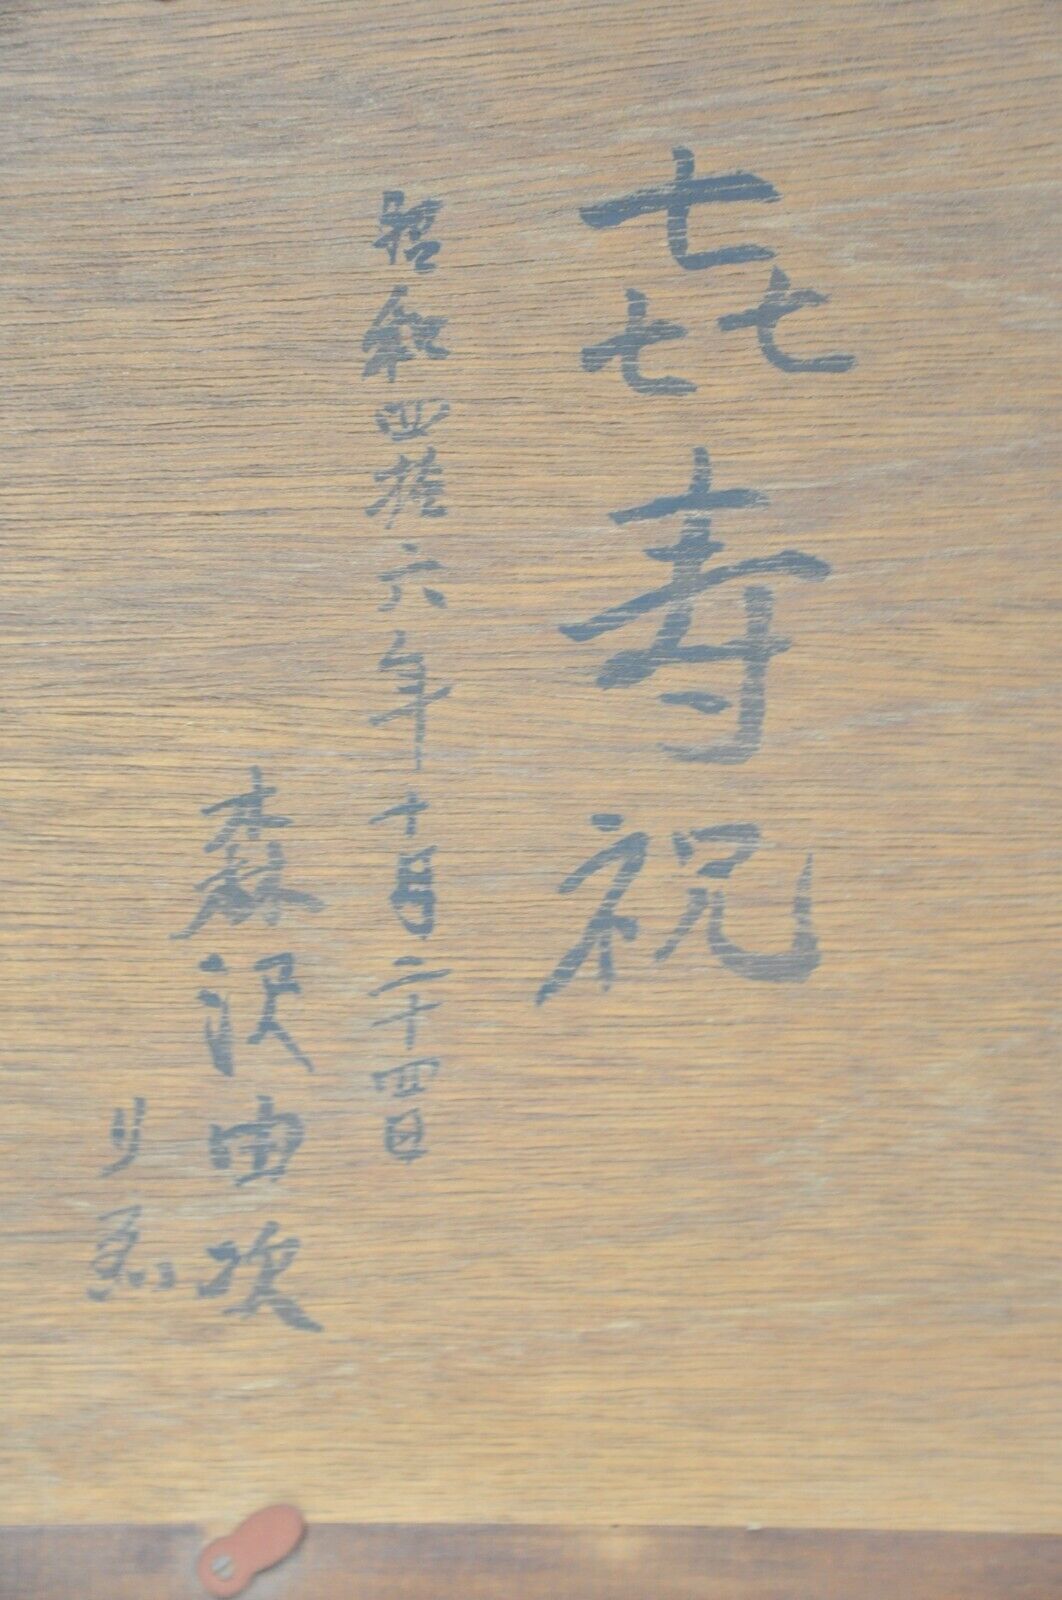 㐂寿祝
昭和四拾六年十月二十四日
森沢由次
リゑ